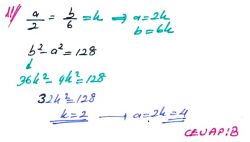 11) a/2 = b/6 = k ⇒ a=2k
b=6k
b² - a² = 128
↓
36k² - 4k² = 128
32k² = 128
k=2 → a=2k=4
CEVAP:B